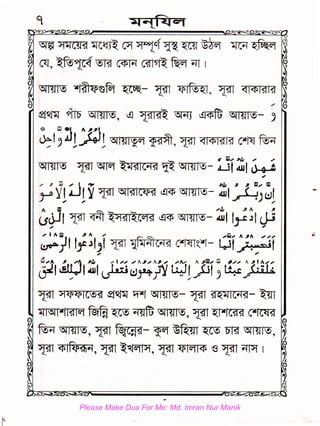 ৭ মনযিল
অল্প সময়ের মধ্যেই সে সম্পূর্ণ সুস্থ হয়ে উঠল মনে হচ্ছিল
যে, ইতিপূর্বে তার কোন রোগই ছিল না ।
আয়াত শরীফগুলি হচ্ছে– সূরা ফাতিহা, সূরা বাকারার
প্রথম পাঁচ আয়াত, এ সূরারই অন্য একটি আয়াত– و
الهكم اله واحد আয়াতুল কুরসী, সূরা বাকারার শেষ তিন
আয়াত সূরা আলে ইমরানের দুই আয়াত– شهد الله انه
لا اله الا هو সূরা আরাফের এক আয়াত– ان ربكم الله
الذى সূরা বনী ইসরাইলের এক আয়াত– قل ادعوا الله
او ادعوا الرحمن সূরা মুমিনূনের শেষাংশ– افحسبتم انما
خلقناكم عبثا وانكم الينا لاترجعون فتعلى الله الملك الحق
সূরা সফফাতের প্রথম দশ আয়াত– সূরা রহমানের– ইয়া
মাআশারাল জিন্নি হতে নয়টি আয়াত, সূরা হাশরের শেষের
তিন আয়াত, সূরা জিনের– কুল উহিয়া হতে চার আয়াত,
সূরা কাফিরুন, সূরা ইখলাস, সূরা ফালাক ও সূরা নাস ।
Please Make Dua For Me: Md. Imran Nur Manik